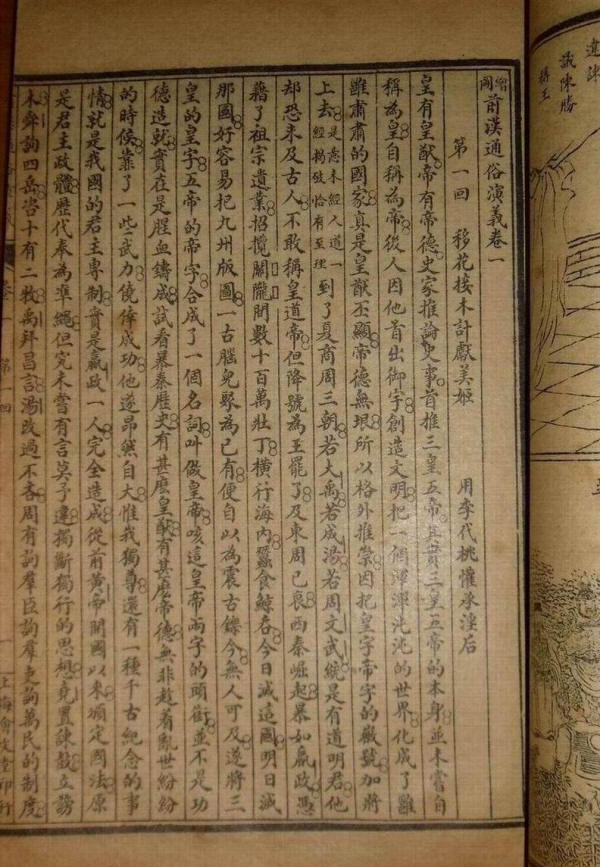 議陳勝
稱王
繪圖前漢通俗演義卷一
第一回　移花接木計獻美姬　用李代桃懽承淫后
皇有皇猷帝有帝德史家推論史事首推三皇五帝其實三皇五帝的本身並未嘗自
稱為皇自稱為帝後人因他首出御宇創造文明把一個渾渾沌沌的世界化成了雝
雝肅肅的國家真是皇猷丕顯帝德無垠所以格外推崇因把皇字帝字的徽號加將
上去是意未經人道一經揭破恰有至理到了夏商周三朝若大禹若成湯若周文武統是有道明君他
却恐未及古人不敢稱皇道帝但降號為王罷了及東周已衰西秦崛起暴如嬴政憑
藉了祖宗遺業招攬關隴間數十百萬壯丁橫行海內蠶食鯨吞今日滅這國明日滅
那國好容易把九州版圖一古腦兒聚為己有便自以為震古鑠今無人可及遂將三
皇的皇字五帝的帝字合成了一個名詞叫做皇帝咳這皇帝兩字的頭銜並不是功
德造就實在是腥血鑄成試看暴秦歷史有甚麼皇猷有甚麼帝德無非趁着亂世紛紛
的時候了一些武力僥倖成功他遂昂然自大惟我獨尊還有一種千古紀念的事
情就是我國的君主專制實是嬴政一人完全造成從前黃帝開國以來頒定國法原
是君主政體歷代奉為準繩但究未嘗有言莫予違獨斷獨行的思想堯置諫鼓立謗
木舜詢四岳咨十有二牧禹拜昌言湯改過不吝周有詢羣臣詢羣吏詢萬民的制度
卷一　第一回　一　上海會文堂印行